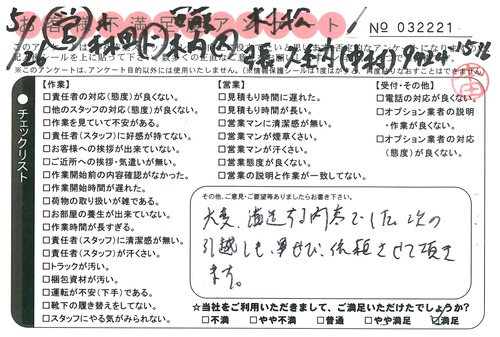 お客様不満足度アンケート!
No 032221
※このアンケートは、アンケート目的以外には使用いたしません。
チェックリスト
【作業】
□責任者の対応(態度)が良くない。
□他のスタッフの対応(態度)が良くない。
□作業を見ていて不安がある。
□責任者(スタッフ)に好感が持てない。
□お客様への挨拶が出来ていない。
□ご近所への挨拶・気遣いが無い。
□作業開始前の内容確認がなかった。
□作業開始時間が遅れた。
□荷物の取り扱いが雑である。
□お部屋の養生が出来ていない。
□作業時間が長すぎる。
□責任者(スタッフ)に清潔感が無い。
□責任者(スタッフ)が汗くさい。
□トラックが汚い。
□梱包資材が汚い。
□運転が不安(下手)である。
□靴下の履き替えをしてない。
□スタッフにやる気がみられない。
【営業】
□見積もり時間に遅れた。
□見積もり時間が長い。
□営業マンに清潔感が無い。
□営業マンが煙草くさい。
□営業マンが汗くさい。
□営業態度が良くない。
□営業の説明と作業が一致してない。
【受付・その他】
□電話の対応が良くない。
□オプション業者の説明
・作業が良くない。
□オプション業者の対応
(態度)が良くない。
その他、ご意見・ご要望等ありましたらお書き下さい。
大変、満足する内容でした。次の
引越しも、是非、依頼させて頂き
ます。
☆当社をご利用いただきまして、ご満足いただけたでしょうか?
□不満 □やや不満 □普通 □やや満足 ☑満足